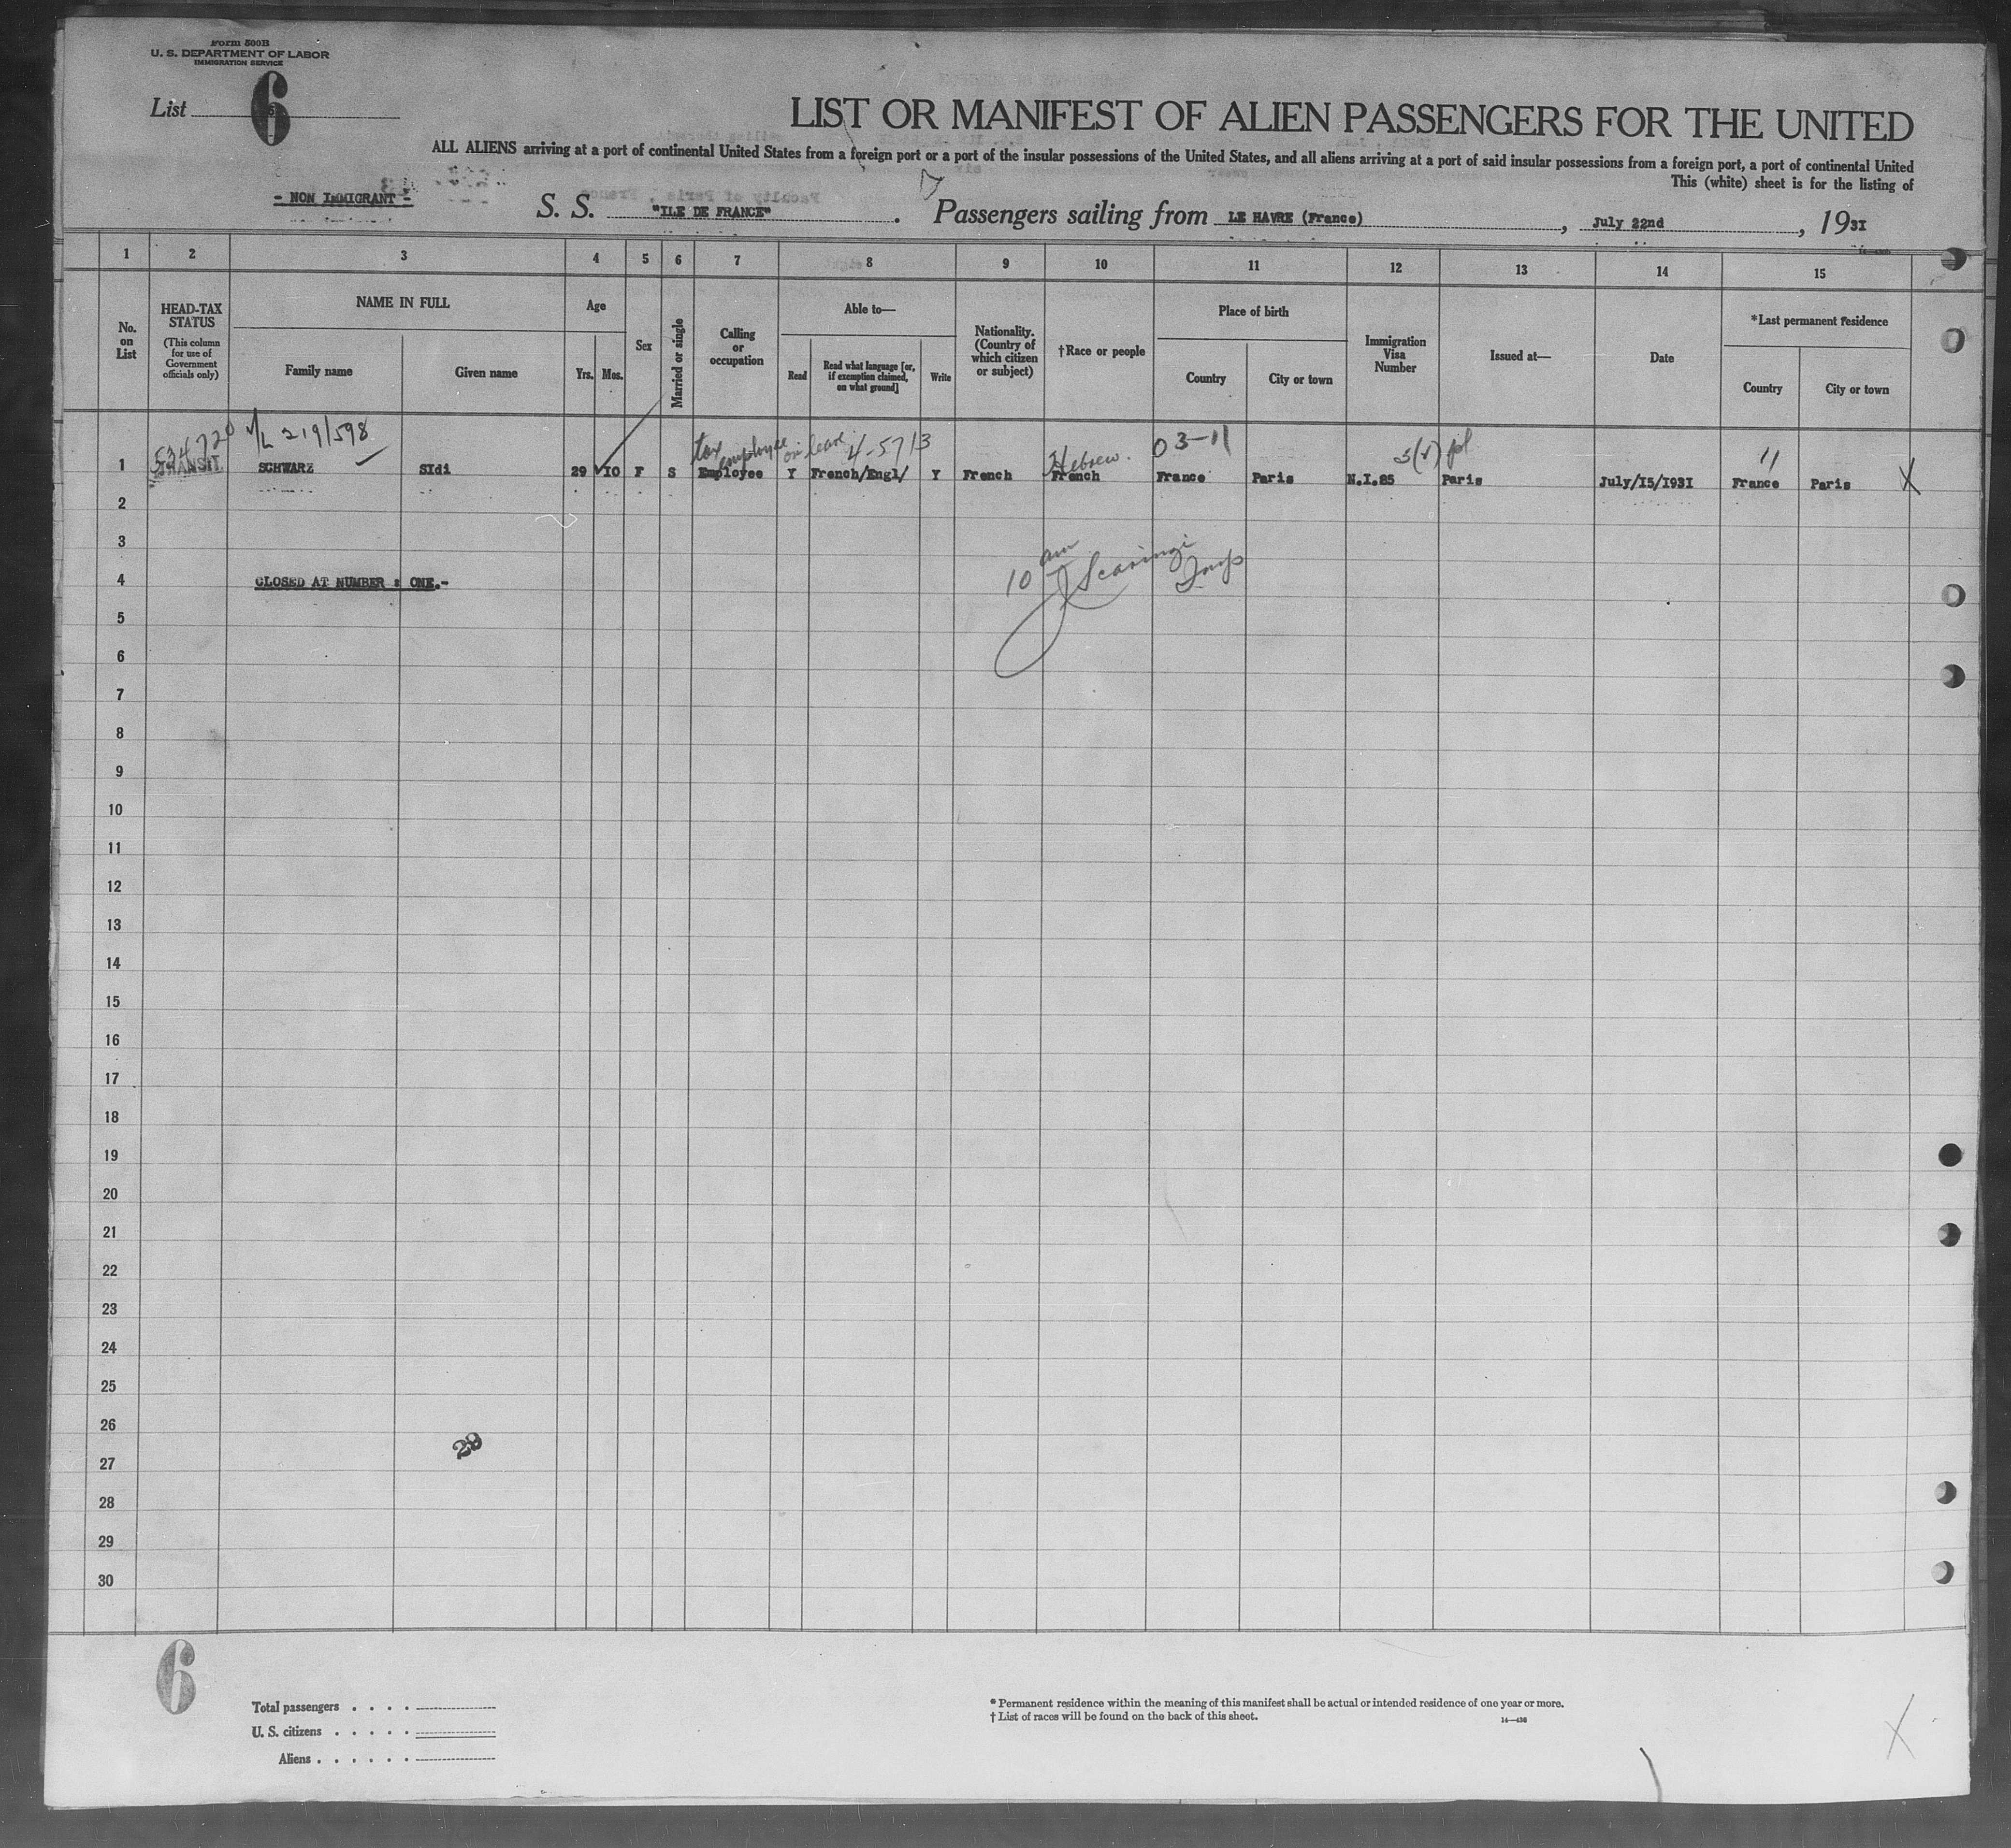 Form 500B
U. S. DEPARTMENT OF LABOR
IMMIGRATION SERVICE
List 6
LIST OR MANIFEST OF ALIEN PASSENGERS FOR THE UNITED
ALL ALIENS arriving at a port of continental United States from a foreign port or a port of the insular possessions of the United States, and all aliens arriving at a port of said insular possessions from a foreign port, a port of continental United
This (white) sheet is for the listing of
- NON IMMIGRANT -
S. S. "ILE DE FRANCE". Passengers sailing from LE HAVRE (France), July 22nd, 1931
1 2 3 4 5 6 7 8 9 10 11 12 13 14 15
No. on List
HEAD-TAX STATUS
(This column for use of Government officials only)
NAME IN FULL
Family name
Given name
Age
Yrs. Mos.
Sex
Married or single
Calling or occupation
Able to—
Read
Read what language [or, if exemption claimed, on what ground]
Write
Nationality. (Country of which citizen or subject)
†Race or people
Place of birth
Country
City or town
Immigration Visa Number
Issued at—
Date
*Last permanent residence
Country
City or town
534720 V/L 219/598 tax employee on leave 4-5713 Hebrew. 03-11 3(2) pl 11
1 TRANSIT SCHWARZ SIdi 29 IO F S Employee Y French/Engl/ Y French French France Paris N.I.85 Paris July/I5/I93I France Paris X
2
3
10 am J Scaringi Insp
4 CLOSED AT NUMBER : ONE.-
5
6
7
8
9
10
11
12
13
14
15
16
17
18
19
20
21
22
23
24
25
26
28
27
28
29
30
6
Total passengers . . . .
U. S. citizens . . . . .
Aliens . . . . . .
* Permanent residence within the meaning of this manifest shall be actual or intended residence of one year or more.
† List of races will be found on the back of this sheet.
14—430
X